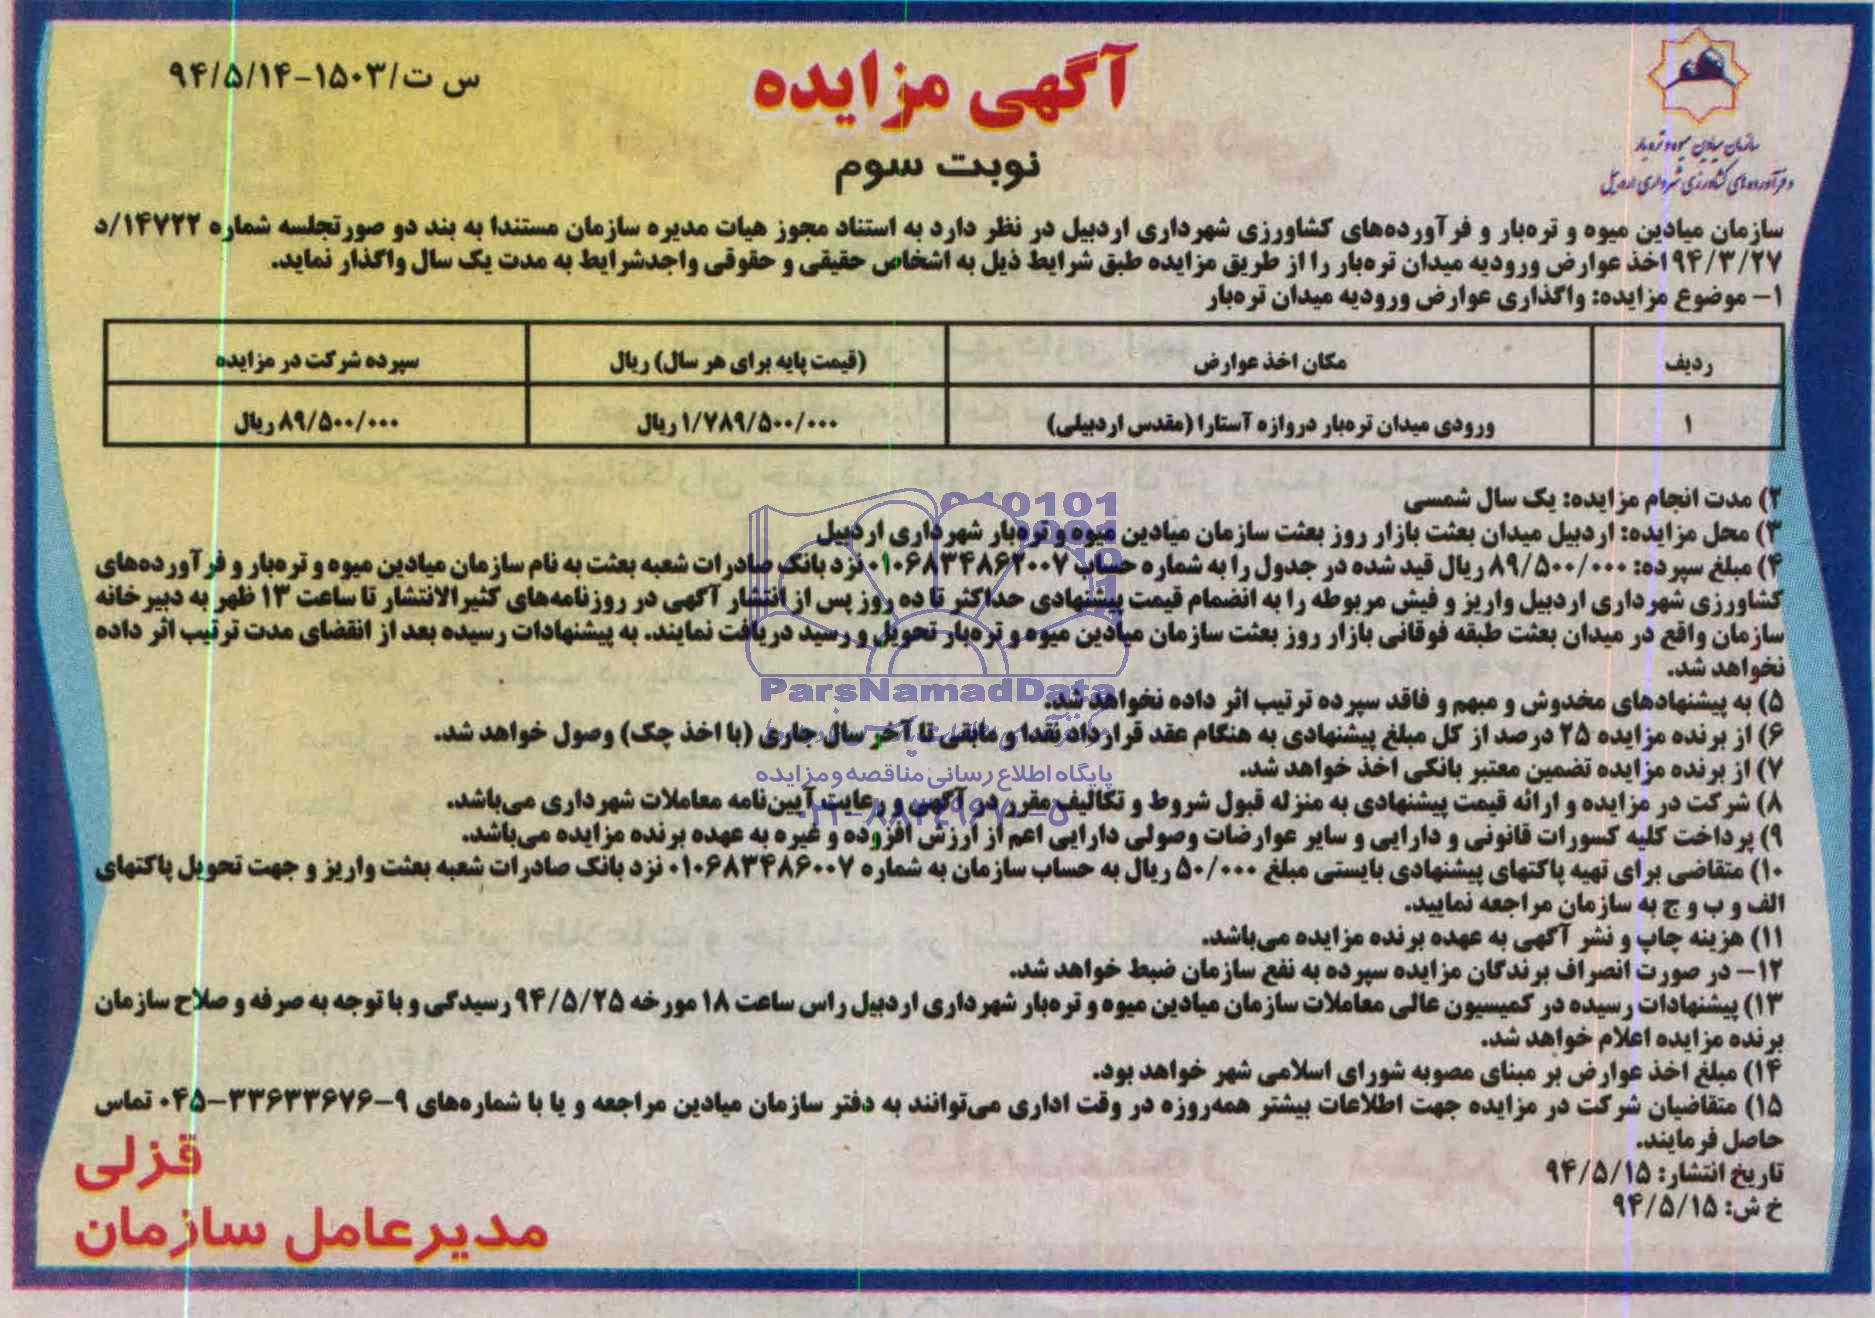 سازمان میادین میوه و تره‌بار
و فرآورده‌های کشاورزی شهرداری اردبیل
آگهی مزایده
س ت/۱۵۰۳-۹۴/۵/۱۴
نوبت سوم
سازمان میادین میوه و تره‌بار و فرآورده‌های کشاورزی شهرداری اردبیل در نظر دارد به استناد مجوز هیات مدیره سازمان مستندا به بند دو صورتجلسه شماره ۱۴۷۲۲/د
۹۴/۳/۲۷ اخذ عوارض ورودیه میدان تره‌بار را از طریق مزایده طبق شرایط ذیل به اشخاص حقیقی و حقوقی واجدشرایط به مدت یک سال واگذار نماید.
۱- موضوع مزایده: واگذاری عوارض ورودیه میدان تره‌بار
ردیف مکان اخذ عوارض (قیمت پایه برای هر سال) ریال سپرده شرکت در مزایده
۱ ورودی میدان تره‌بار دروازه آستارا (مقدس اردبیلی) ۱/۷۸۹/۵۰۰/۰۰۰ ریال ۸۹/۵۰۰/۰۰۰ ریال
۲) مدت انجام مزایده: یک سال شمسی
۳) محل مزایده: اردبیل میدان بعثت بازار روز بعثت سازمان میادین میوه و تره‌بار شهرداری اردبیل
۴) مبلغ سپرده: ۸۹/۵۰۰/۰۰۰ ریال قید شده در جدول را به شماره حساب ۰۱۰۶۸۳۴۸۶۲۰۰۷ نزد بانک صادرات شعبه بعثت به نام سازمان میادین میوه و تره‌بار و فرآورده‌های
کشاورزی شهرداری اردبیل واریز و فیش مربوطه را به انضمام قیمت پیشنهادی حداکثر تا ده روز پس از انتشار آگهی در روزنامه‌های کثیرالانتشار تا ساعت ۱۳ ظهر به دبیرخانه
سازمان واقع در میدان بعثت طبقه فوقانی بازار روز بعثت سازمان میادین میوه و تره‌بار تحویل و رسید دریافت نمایند. به پیشنهادات رسیده بعد از انقضای مدت ترتیب اثر داده
نخواهد شد.
۵) به پیشنهادهای مخدوش و مبهم و فاقد سپرده ترتیب اثر داده نخواهد شد.
۶) از برنده مزایده ۲۵ درصد از کل مبلغ پیشنهادی به هنگام عقد قرارداد نقدا و مابقی تا آخر سال جاری (با اخذ چک) وصول خواهد شد.
۷) از برنده مزایده تضمین معتبر بانکی اخذ خواهد شد.
۸) شرکت در مزایده و ارائه قیمت پیشنهادی به منزله قبول شروط و تکالیف مقرر در آگهی و رعایت آیین‌نامه معاملات شهرداری می‌باشد.
۹) پرداخت کلیه کسورات قانونی و دارایی و سایر عوارضات وصولی دارایی اعم از ارزش افزوده و غیره به عهده برنده مزایده می‌باشد.
۱۰) متقاضی برای تهیه پاکتهای پیشنهادی بایستی مبلغ ۵۰/۰۰۰ ریال به حساب سازمان به شماره ۰۱۰۶۸۳۴۸۶۰۰۷ نزد بانک صادرات شعبه بعثت واریز و جهت تحویل پاکتهای
الف و ب و ج به سازمان مراجعه نمایید.
۱۱) هزینه چاپ و نشر آگهی به عهده برنده مزایده می‌باشد.
۱۲- در صورت انصراف برندگان مزایده سپرده به نفع سازمان ضبط خواهد شد.
۱۳) پیشنهادات رسیده در کمیسیون عالی معاملات سازمان میادین میوه و تره‌بار شهرداری اردبیل راس ساعت ۱۸ مورخه ۹۴/۵/۲۵ رسیدگی و با توجه به صرفه و صلاح سازمان
برنده مزایده اعلام خواهد شد.
۱۴) مبلغ اخذ عوارض بر مبنای مصوبه شورای اسلامی شهر خواهد بود.
۱۵) متقاضیان شرکت در مزایده جهت اطلاعات بیشتر همه‌روزه در وقت اداری می‌توانند به دفتر سازمان میادین مراجعه و یا با شماره‌های ۹-۳۳۶۳۳۶۷۶-۰۴۵ تماس
حاصل فرمایند.
تاریخ انتشار: ۹۴/۵/۱۵
خ ش: ۹۴/۵/۱۵
قزلی
مدیرعامل سازمان
ParsNamadData
پایگاه اطلاع رسانی مناقصه و مزایده
۰۲۱-۸۸۳۴۹۶۷۰-۵